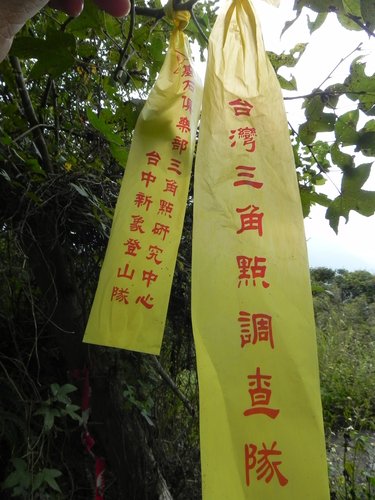 台灣三角點調查隊
俱樂部三角點研究中心
台中新象登山隊